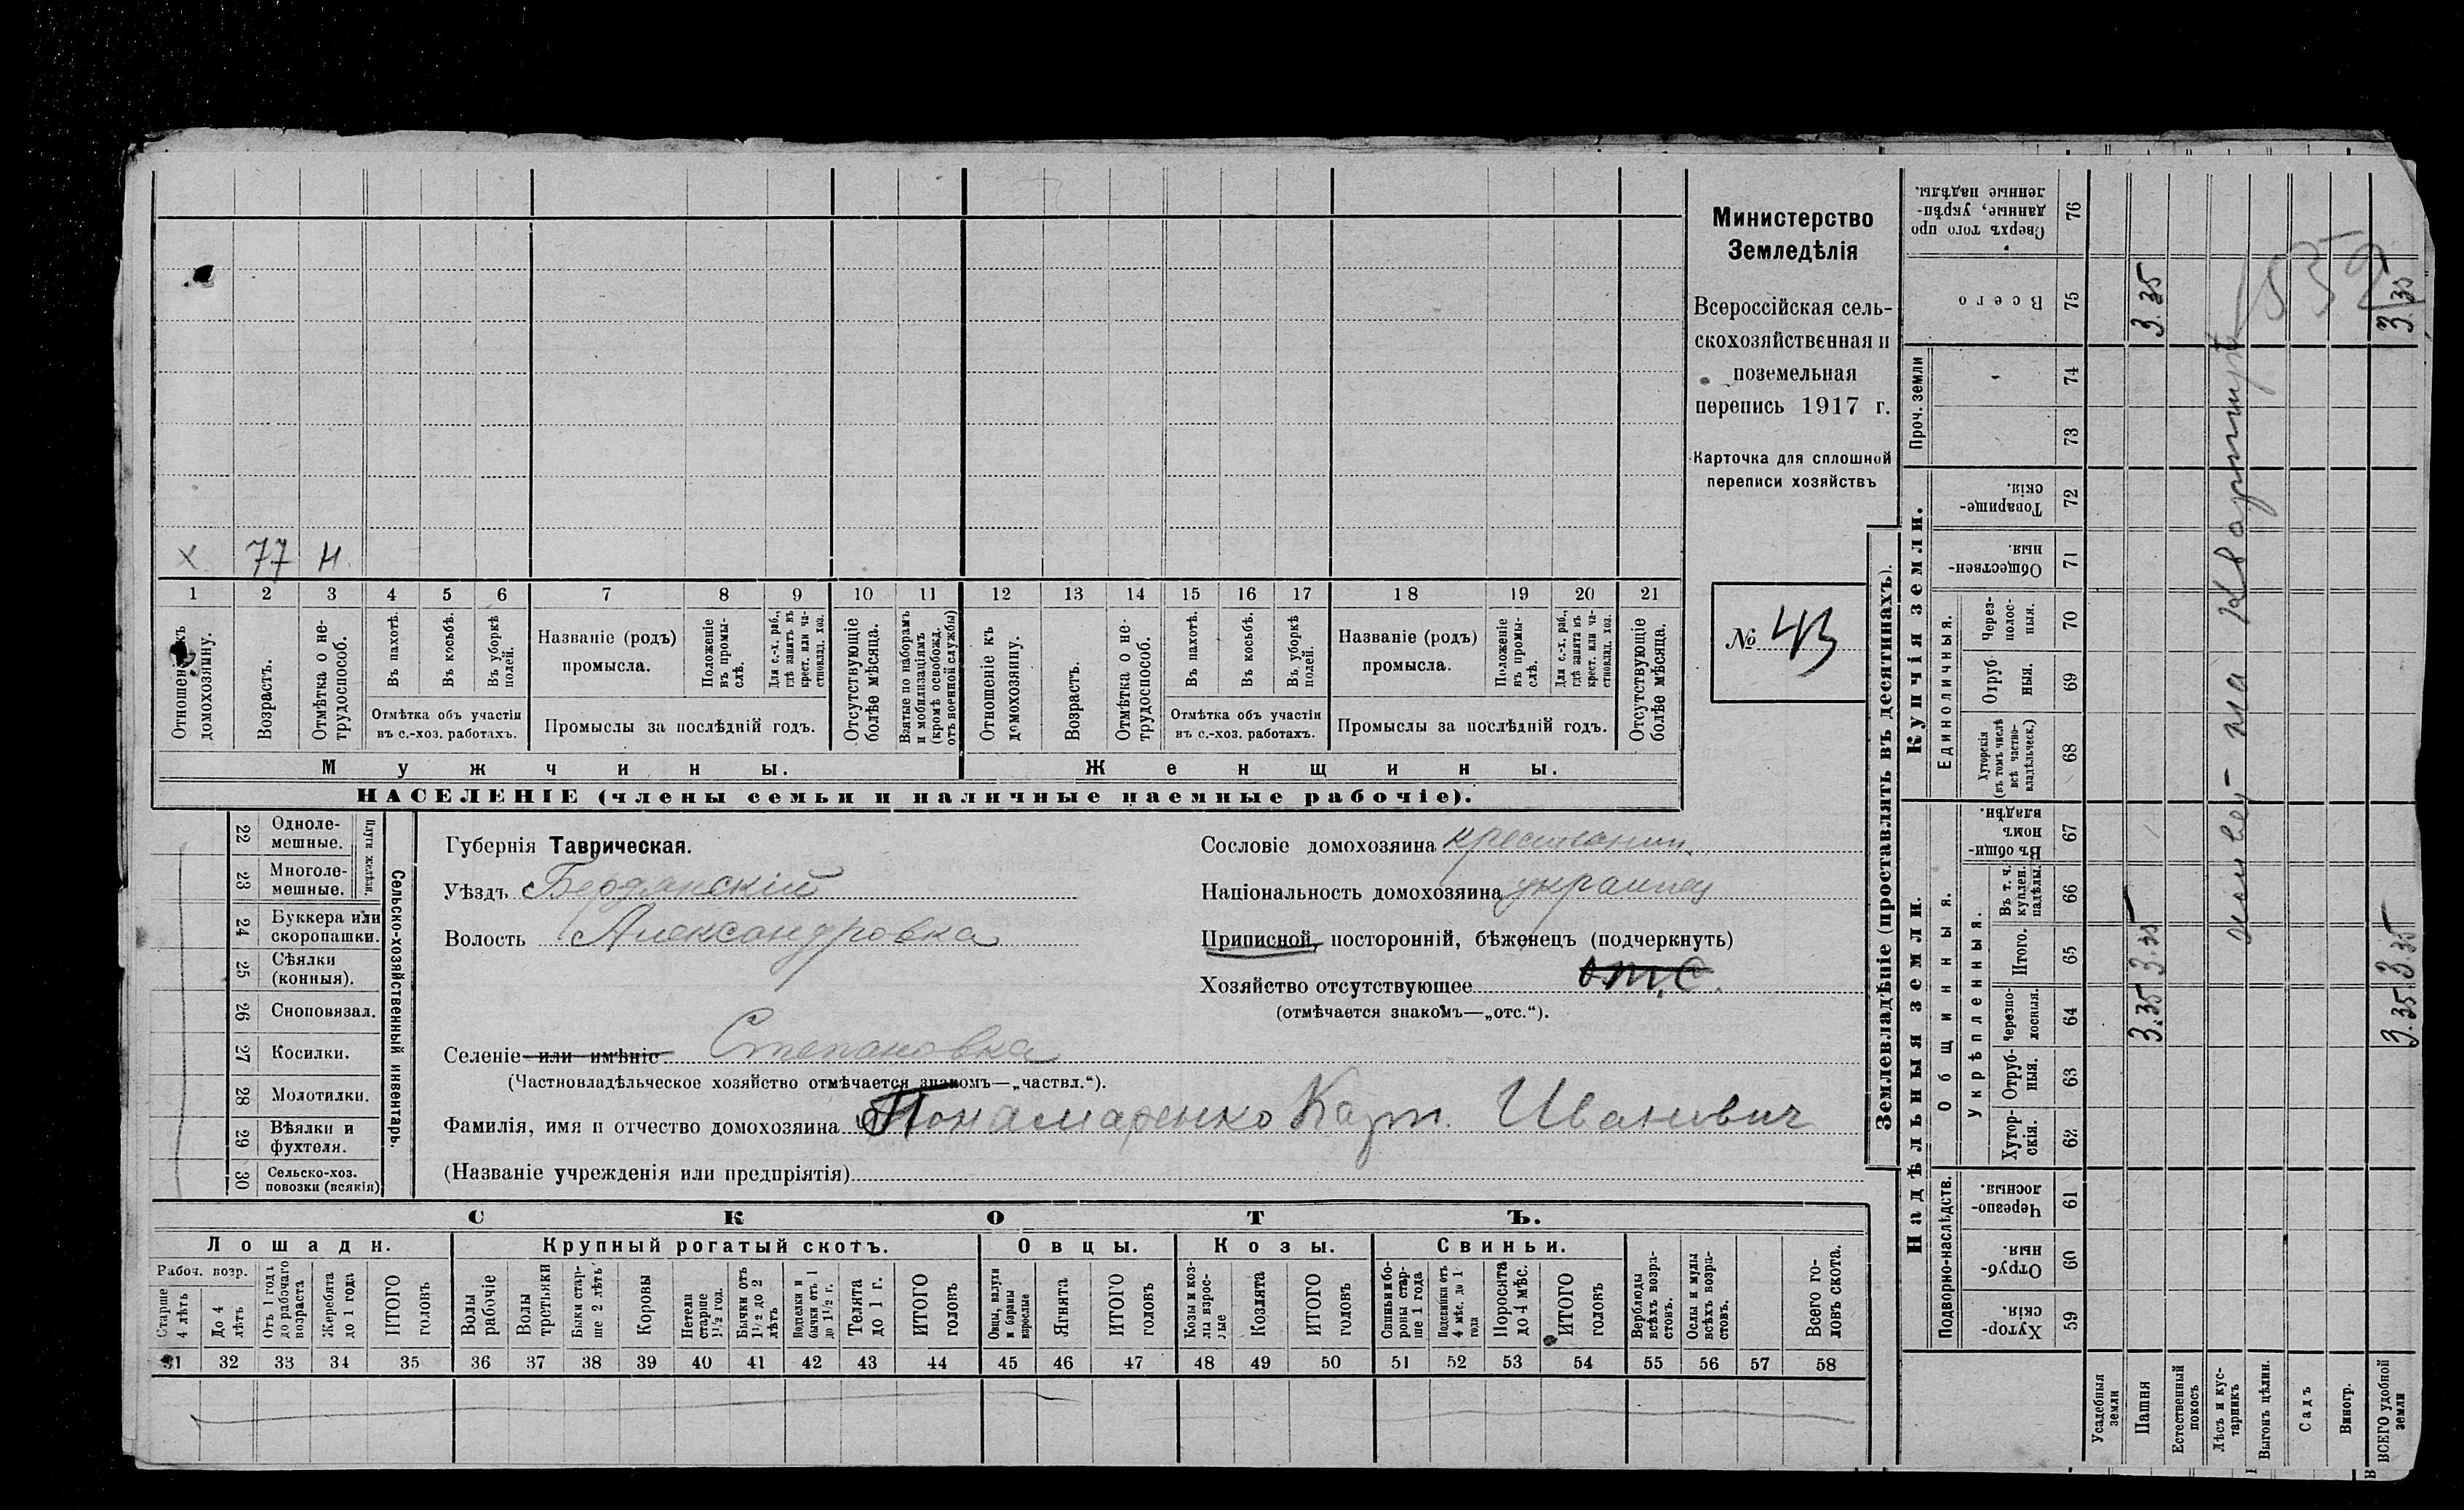 Министерство
Земледѣлія
Всероссійская сель-
скохозяйственная и
поземельная
перепись 1917 г.
Карточка для сплошной
переписи хозяйствъ
№ 43
х 77 Н.
1 2 3 4 5 6 7 8 9 10 11 12 13 14 15 16 17 18 19 20 21
Отношеніе къ домохозяину.
Возрастъ.
Отмѣтка о не-трудоспособ.
Въ пахотѣ.
Въ косьбѣ.
Въ уборкѣ полей.
Отмѣтка объ участіи
въ с.-хоз. работахъ.
Названіе (родъ)
промысла.
Положеніе въ промы-слѣ.
Для с.-х. раб., гдѣ занятъ въ крест. или ча-стновлад. хоз.
Промыслы за послѣдній годъ.
Отсутствующіе болѣе мѣсяца.
Взятые по наборамъ и мобилизаціямъ (кромѣ освобожд. отъ военной службы)
Отношеніе къ домохозяину.
Возрастъ.
Отмѣтка о не-трудоспособ.
Въ пахотѣ.
Въ косьбѣ.
Въ уборкѣ полей.
Отмѣтка объ участіи
въ с.-хоз. работахъ.
Названіе (родъ)
промысла.
Положеніе въ промы-слѣ.
Для с.-х. раб., гдѣ занята въ крест. или ча-стновлад. хоз.
Промыслы за послѣдній годъ.
Отсутствующіе болѣе мѣсяца.
Мужчины. Женщины.
НАСЕЛЕНІЕ (члены семьи и наличные наемные рабочіе).
Сельско-хозяйственный инвентарь.
Плуги желѣзн.
22 Одноле-мешные.
23 Многоле-мешные.
24 Буккера или скоропашки.
25 Сѣялки (конныя).
26 Сноповязал.
27 Косилки.
28 Молотилки.
29 Вѣялки и фухтеля.
30 Сельско-хоз. повозки (всякія)
Губернія Таврическая.
Уѣздъ Бердянскій
Волость Александровка
Селеніе или имѣніе Степановка
(Частновладѣльческое хозяйство отмѣчается знакомъ—„частвл.“).
Фамилія, имя и отчество домохозяина Понамаренко Карп. Иванович
(Названіе учрежденія или предпріятія)
Сословіе домохозяина крестьянин.
Національность домохозяина украинец
Приписной, посторонній, бѣженецъ (подчеркнуть)
Хозяйство отсутствующее отс.
(отмѣчается знакомъ—„отс.“).
СКОТЪ.
Лошади. Крупный рогатый скотъ. Овцы. Козы. Свиньи.
Рабоч. возр.
Старше 4 лѣтъ
До 4 лѣтъ
Отъ 1 года до рабочаго возраста
Жеребята до 1 года
ИТОГО головъ
Волы рабочіе
Волы третьяки
Быки стар-ше 2 лѣтъ
Коровы
Нетели старше 1½ год.
Бычки отъ 1½ до 2 лѣтъ
Подтелки и бычки отъ 1 до 1½ г.
Телята до 1 г.
ИТОГО головъ
Овцы, валухи и бараны взрослые
Ягнята
ИТОГО головъ
Козы и коз-лы взрос-лые
Козлята
ИТОГО головъ
Свиньи и бо-ровы стар-ше 1 года
Подсвинки отъ 4 мѣс. до 1 года
Поросята до 4 мѣс.
ИТОГО головъ
Верблюды всѣхъ возра-стовъ.
Ослы и мулы всѣхъ возра-стовъ.
Всего го-ловъ скота.
31 32 33 34 35 36 37 38 39 40 41 42 43 44 45 46 47 48 49 50 51 52 53 54 55 56 57 58
Землевладѣніе (проставлять въ десятинахъ).
Надѣльныя земли. Купчія земли. Проч. земли
Подворно-наслѣдств. Общинныя. Единоличныя.
Укрѣпленныя.
Хутор-скія. 59
Отруб-ныя. 60
Черезпо-лосныя. 61
Хутор-скія. 62
Отруб-ныя. 63
Черезпо-лосныя. 64
Итого. 65
Въ т. ч. куплен. надѣлы. 66
Въ общи-номъ владѣн. 67
Хуторскія (въ томъ числѣ всѣ частно-владѣльческ.) 68
Отруб-ныя. 69
Через-полос-ныя. 70
Обществен-ныя. 71
Товарище-скія. 72
73 74
Всего 75
Сверхъ того про-данные, укрѣп-ленные надѣлы. 76
Усадебныя земли
Пашня 3.35 3.35 3.35
Естественный покосъ
Лѣсъ и кус-тарникъ
Выгонъ цѣлин.
Садъ
Виногр.
ВСЕГО удобной земли 3.35 3.35 3.35
живет на квартире